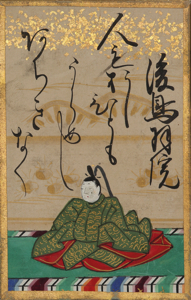 後鳥羽院
人もおし
うらめし
あちきなく